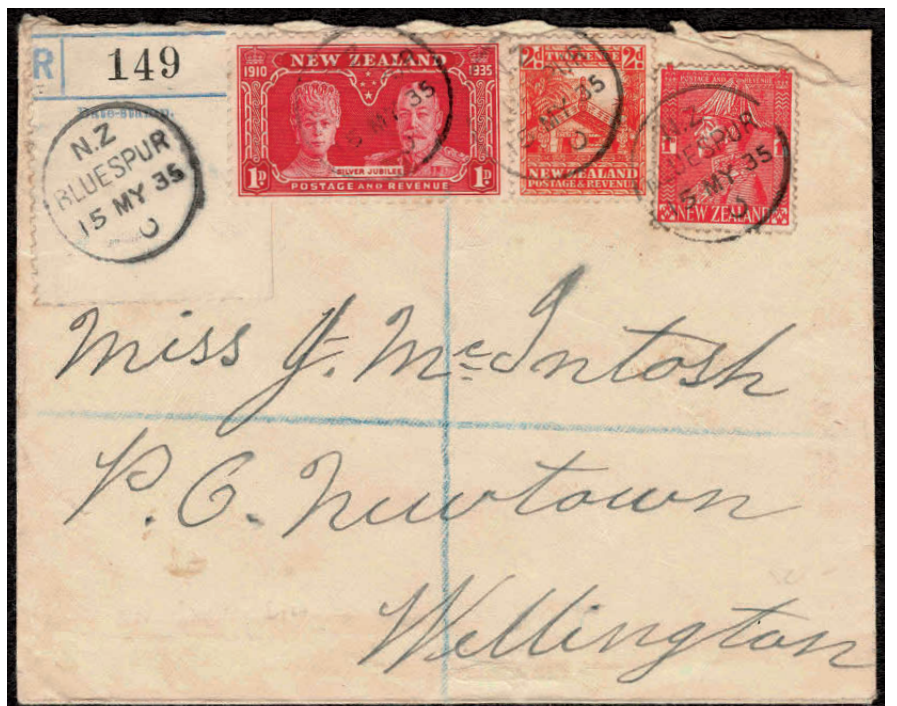 R 149
Date-stamp.
N.Z
BLUESPUR
15 MY 35
1910 NEW ZEALAND 1935
SILVER JUBILEE
1D POSTAGE AND REVENUE 1D
N.Z
5 MY 35
2d TWOPENCE 2d
NEW ZEALAND
POSTAGE & REVENUE
MY 35
POSTAGE AND REVENUE
NEW ZEALAND
N.Z
BLUESPUR
15 MY 35
Miss J. McIntosh
P. O. Newtown
Wellington